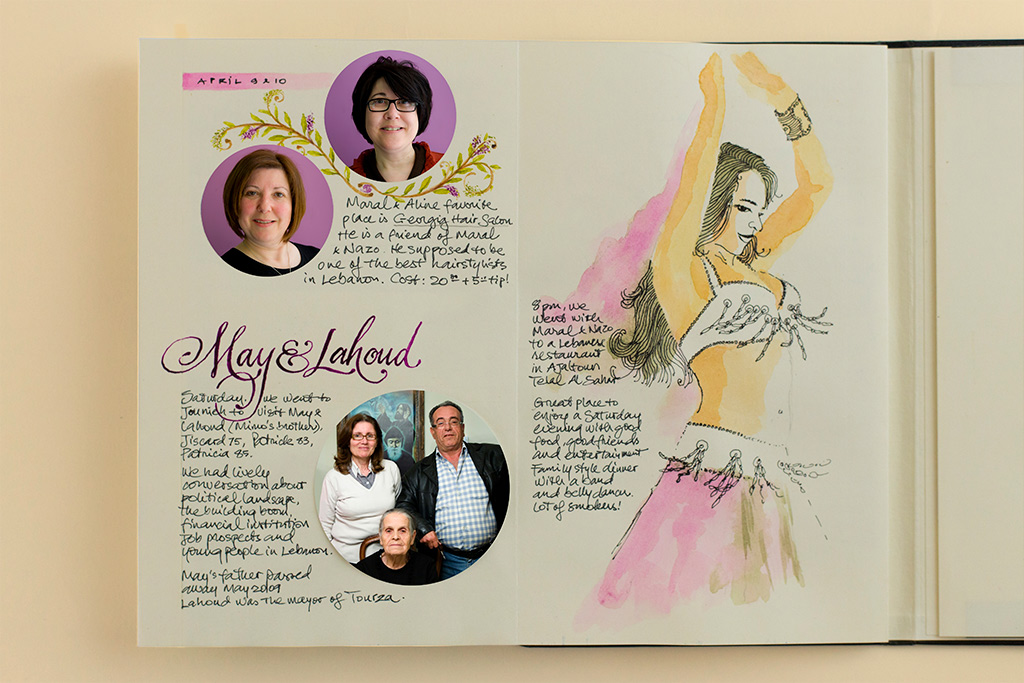 APRIL 9 & 10
Maral & Aline favorite
place is Georgia Hair Salon
He is a friend of Maral
& Nazo. He supposed to be
one of the best hairstylists
in Lebanon. Cost: 20 + 5 tip!
May & Lahoud
Saturday. We went to
Jounieh to visit May &
Lahoud (Mimo's brother),
Jiscard 75, Patrick 83,
Patricia 85.
We had lively
conversation about
political landscape,
the building boom,
financial institution
Job prospects and
young people in Lebanon.
May's father passed
away May 2009
Lahoud was the mayor of Tourza.
8pm, we
went with
Maral & Nazo
to a Lebanese
restaurant
in Ajaltoun
Telal Al Sahat
Great place to
enjoy a Saturday
evening with good
food, good friends
and entertainment
Family style dinner
with a band
and belly dancer.
Lot of smokers!